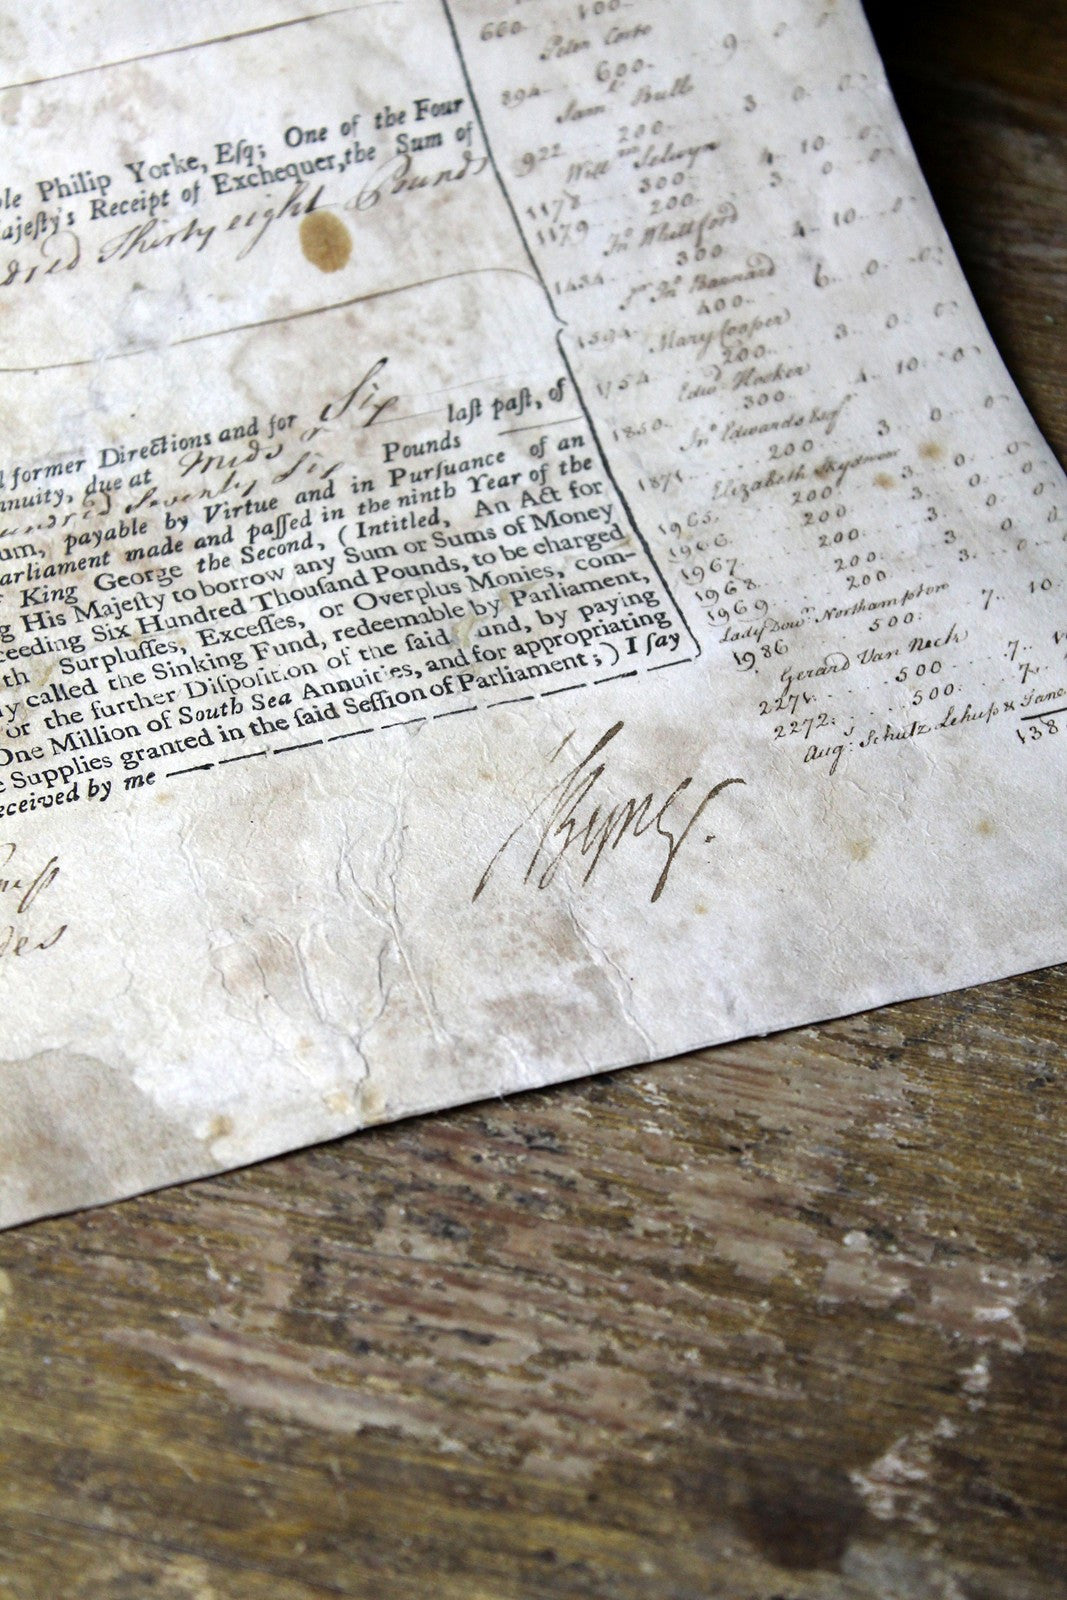 ble Philip Yorke, Eſq; One of the Four
ajeſty's Receipt of Exchequer, the Sum of
dred Thirty eight Pounds
l former Directions and for Six laſt paſt, of
nnuity, due at Mids.r Pounds
undred Seventy Six
um, payable by Virtue and in Purſuance of an
arliament made and paſſed in the ninth Year of the
f King George the Second, (Intitled, An Act for
g His Majeſty to borrow any Sum or Sums of Money
ceeding Six Hundred Thouſand Pounds, to be charged
th Surpluſſes, Exceſſes, or Overplus Monies, com-
y called the Sinking Fund, redeemable by Parliament,
or the further Diſpoſition of the ſaid und, by paying
One Million of South Sea Annuities, and for appropriating
e Supplies granted in the ſaid Seſſion of Parliament;) I ſay
eceived by me
des
660 100
Peter
894 600 9 0 0
Sam.l Bull
922 200 3 0 0
Will.m Selwyn
1178 300 4 10 0
1179 200 3 0 0
Jn.o
1434 300 4 10 0
Jn.o Barnard
1594 400 6 0 0
Mary Cooper
1754 200 3 0 0
Edw.d Hooker
1850 300 4 10 0
Jn.o Edwards Esq.r
1871 200 3 0 0
Elizabeth
1965 200 3 0 0
1966 200 3 0 0
1967 200 3 0 0
1968 200 3 0 0
1969 200 3 0
Lady Dow.r Northampton
1986 500 7 10
Gerard Van Neck
2271 500 7
2272 500 7
Aug.s Schutz Lehup & Jane
138